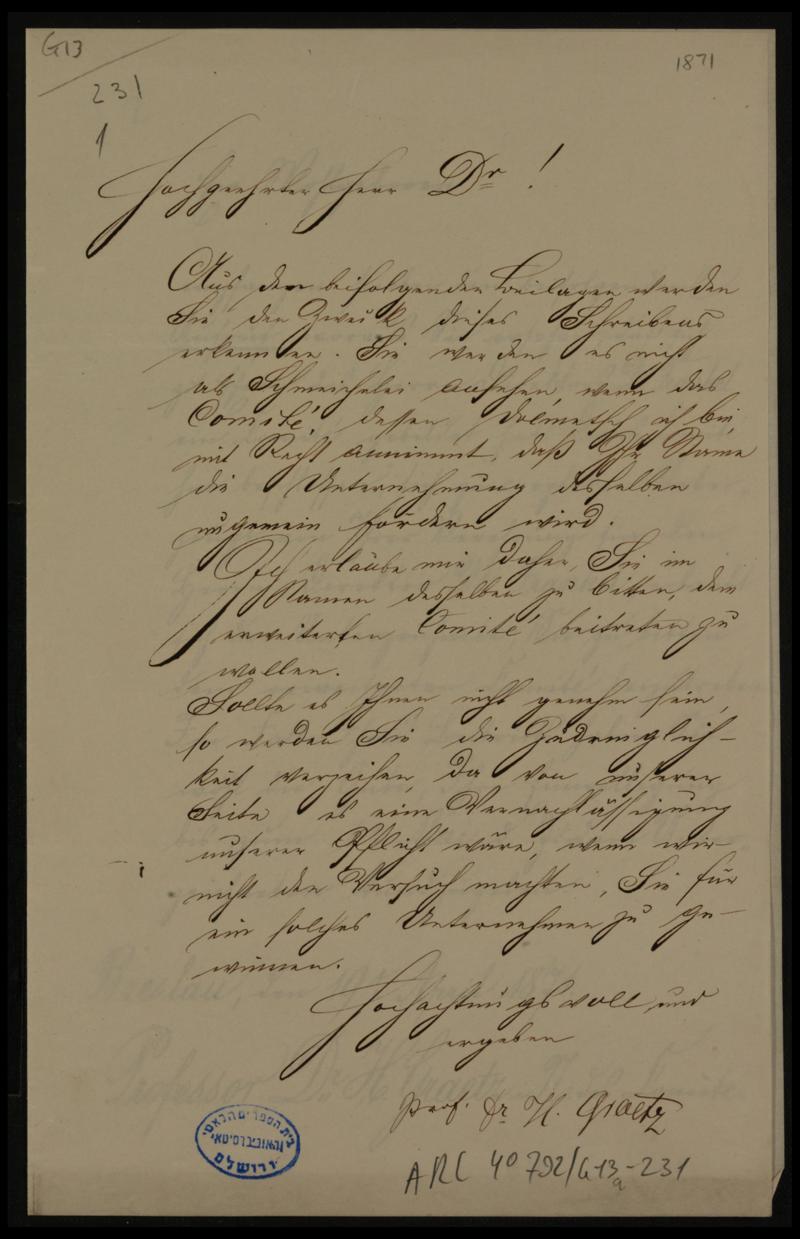 G13
231
1
1871
Hochgeehrter Herr Dr !
Aus den beifolgenden Beilagen werden
Sie den Zweck dieses Schreibens
erkennen. Sie werden es nicht
als Schmeichelei ansehen, wenn das
Comité, dessen Dolmetsch ich bin,
mit Recht annimmt, daß Ihr Name
die Unternehmung desselben
ungemein fördern wird.
Ich erlaube mir daher, Sie im
Namen desselben zu bitten, dem
erweiterten Comité beitreten zu
wollen.
Sollte es Ihnen nicht genehm sein,
so werden Sie die Zudringlich-
keit verzeihen, da von unserer
Seite es eine Vernachlässigung
unserer Pflicht wäre, wenn wir
nicht den Versuch machten, Sie für
ein solches Unternehmen zu ge-
winnen.
Hochachtungsvoll und
ergeben
Prof. Dr H. Graetz
בית הספרים הלאומי
והאוניברסיטאי
ירושלים
ARC 4o 792/G13a-231